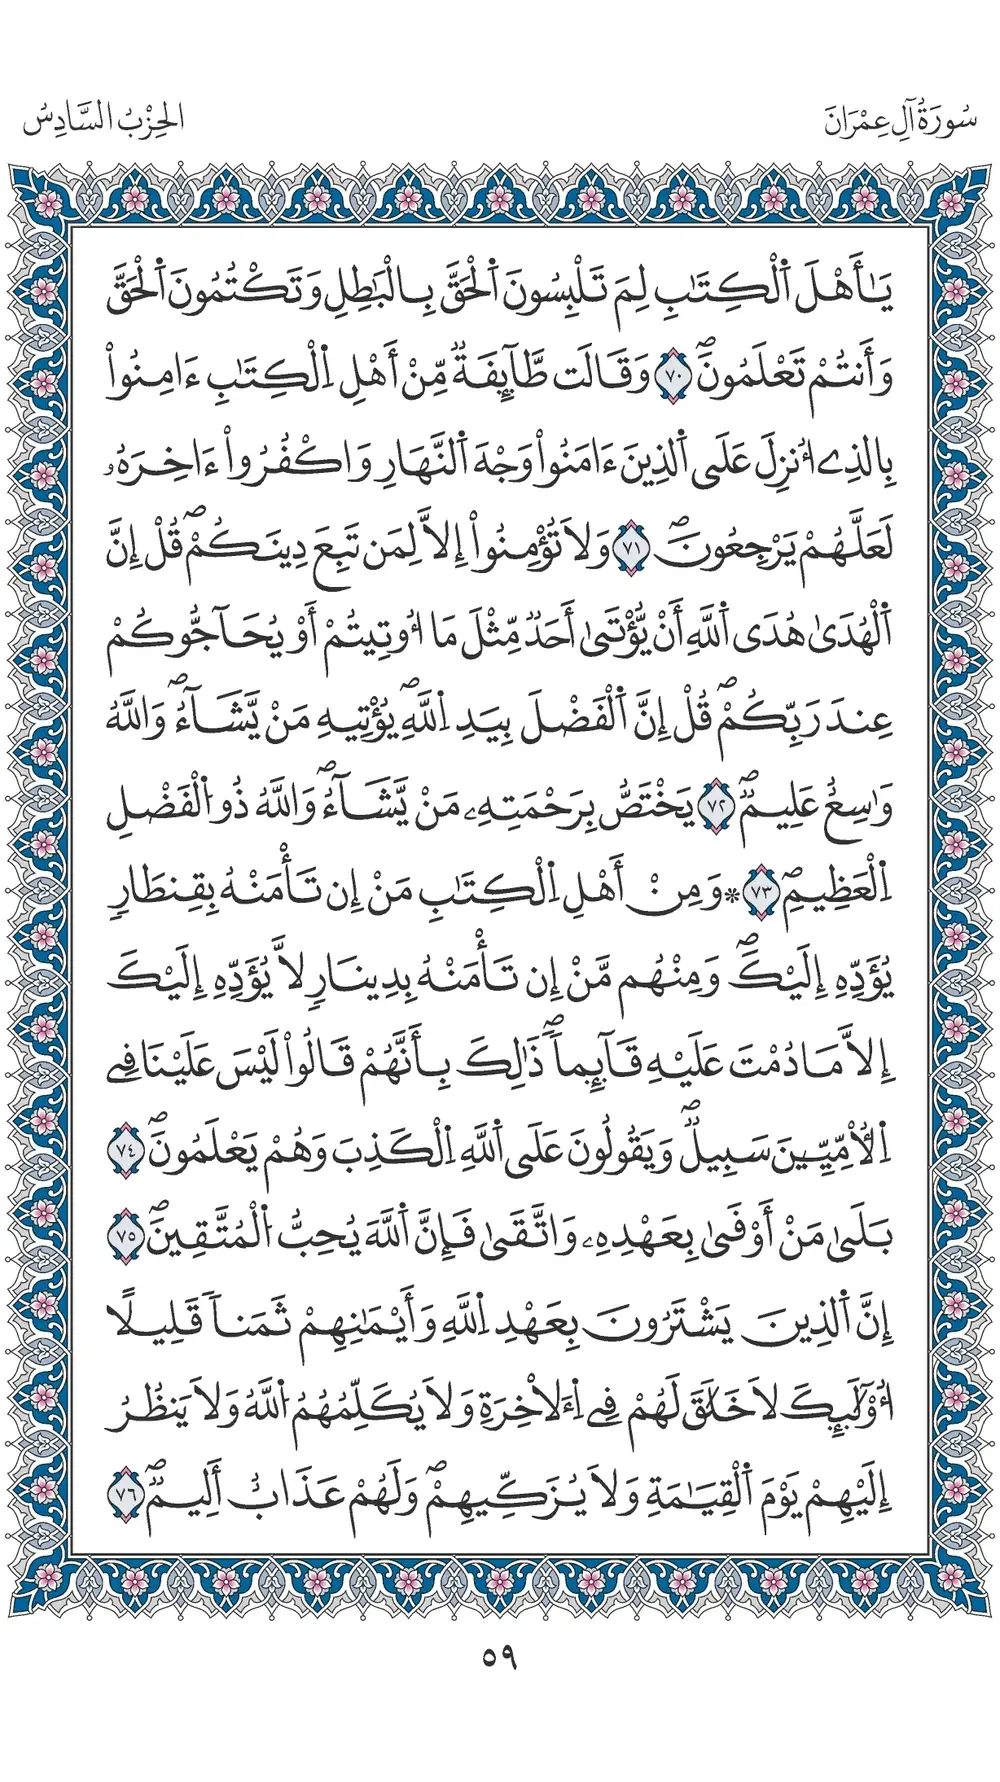 سُورَةُ آلِ عِمْرَانَ
الحِزْبُ السَّادِسُ
يَٰأَهْلَ اَ۬لْكِتَٰبِ لِمَ تَلْبِسُونَ اَ۬لْحَقَّ بِالْبَٰطِلِ وَتَكْتُمُونَ اَ۬لْحَقَّ
وَأَنتُمْ تَعْلَمُونَۖ ٧٠ وَقَالَت طَّآئِفَةٞ مِّنْ أَهْلِ اِ۬لْكِتَٰبِ ءَامِنُواْ
بِالذِےٓ أُنزِلَ عَلَى اَ۬لذِينَ ءَامَنُواْ وَجْهَ اَ۬لنَّهَارِ وَاكْفُرُوٓاْ ءَاخِرَهُۥ
لَعَلَّهُمْ يَرْجِعُونَۖ ٧١ وَلَا تُؤْمِنُوٓاْ إِلَّا لِمَن تَبِعَ دِينَكُمْۖ قُلْ إِنَّ
اَ۬لْهُدَىٰ هُدَى اَ۬للَّهِ أَنْ يُّؤْتَىٰٓ أَحَدٞ مِّثْلَ مَآ أُوتِيتُمْ أَوْ يُحَآجُّوكُمْ
عِندَ رَبِّكُمْۖ قُلْ إِنَّ اَ۬لْفَضْلَ بِيَدِ اِ۬للَّهِۖ يُؤْتِيهِ مَنْ يَّشَآءُۖ وَاللَّهُ
وَٰسِعٌ عَلِيمٞۖ ٧٢ يَخْتَصُّ بِرَحْمَتِهِۦ مَنْ يَّشَآءُۖ وَاللَّهُ ذُو اُ۬لْفَضْلِ
اِ۬لْعَظِيمِۖ ٧٣ * وَمِنْ أَهْلِ اِ۬لْكِتَٰبِ مَنْ إِن تَأْمَنْهُ بِقِنطَارٖ
يُؤَدِّهِۦٓ إِلَيْكَۖ وَمِنْهُم مَّنْ إِن تَأْمَنْهُ بِدِينَارٖ لَّا يُؤَدِّهِۦٓ إِلَيْكَ
إِلَّا مَا دُمْتَ عَلَيْهِ قَآئِماٗۖ ذَٰلِكَ بِأَنَّهُمْ قَالُواْ لَيْسَ عَلَيْنَا فِے
اِ۬لُامِّيِّـۧنَ سَبِيلٞۖ وَيَقُولُونَ عَلَى اَ۬للَّهِ اِ۬لْكَذِبَ وَهُمْ يَعْلَمُونَۖ ٧٤
بَلَىٰ مَنْ أَوْفَىٰ بِعَهْدِهِۦ وَاتَّقَىٰ فَإِنَّ اَ۬للَّهَ يُحِبُّ اُ۬لْمُتَّقِينَۖ ٧٥
إِنَّ اَ۬لذِينَ يَشْتَرُونَ بِعَهْدِ اِ۬للَّهِ وَأَيْمَٰنِهِمْ ثَمَناٗ قَلِيلًا
أُوْلَٰٓئِكَ لَا خَلَٰقَ لَهُمْ فِے اِ۬لَاخِرَةِ وَلَا يُكَلِّمُهُمُ اُ۬للَّهُ وَلَا يَنظُرُ
إِلَيْهِمْ يَوْمَ اَ۬لْقِيَٰمَةِ وَلَا يُزَكِّيهِمْۖ وَلَهُمْ عَذَابٌ أَلِيمٞۖ ٧٦
٥٩